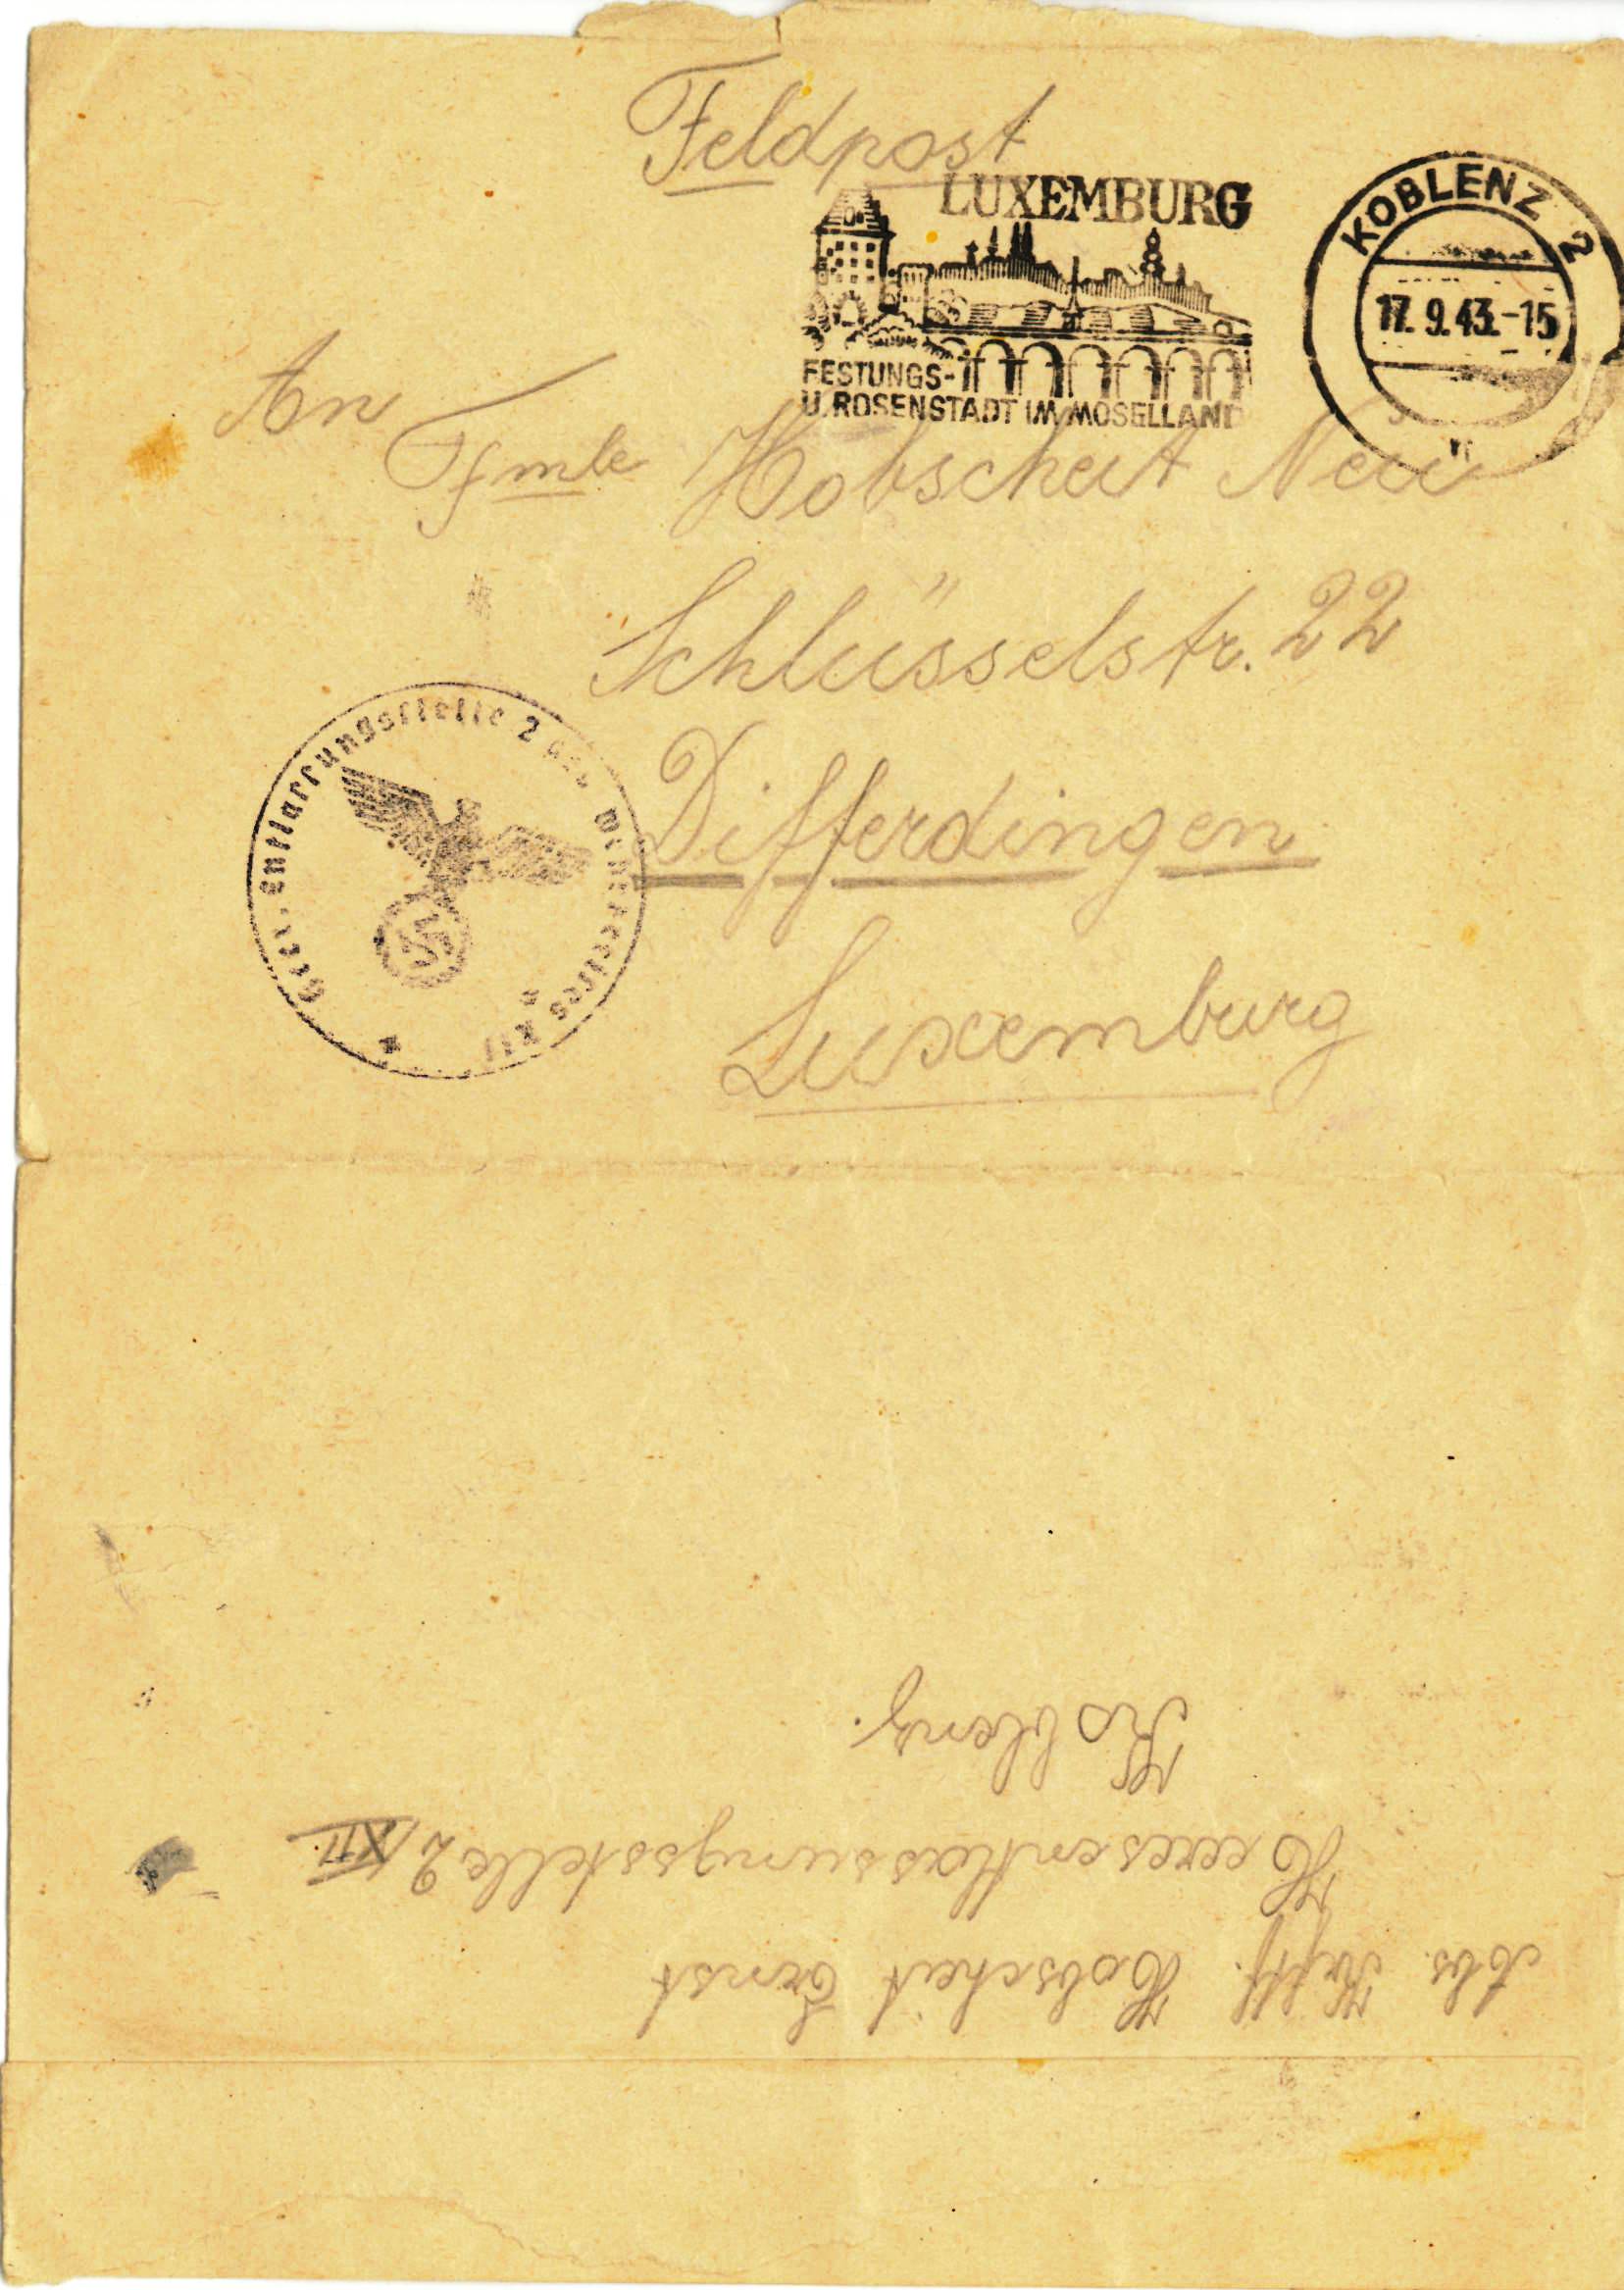 Feldpost
LUXEMBURG
FESTUNGS-
U. ROSENSTADT IM MOSELLAND
KOBLENZ 2
17.9.43.-15
An
Fmle Hobscheit Neu
Schlüsselstr. 22
Differdingen
Luxemburg
Heeres-Entlassungsstelle 2 des Wehrkreises XII
Abs. Hobscheit Ernst
Heeresentlassungsstelle 2/XII
Koblenz.